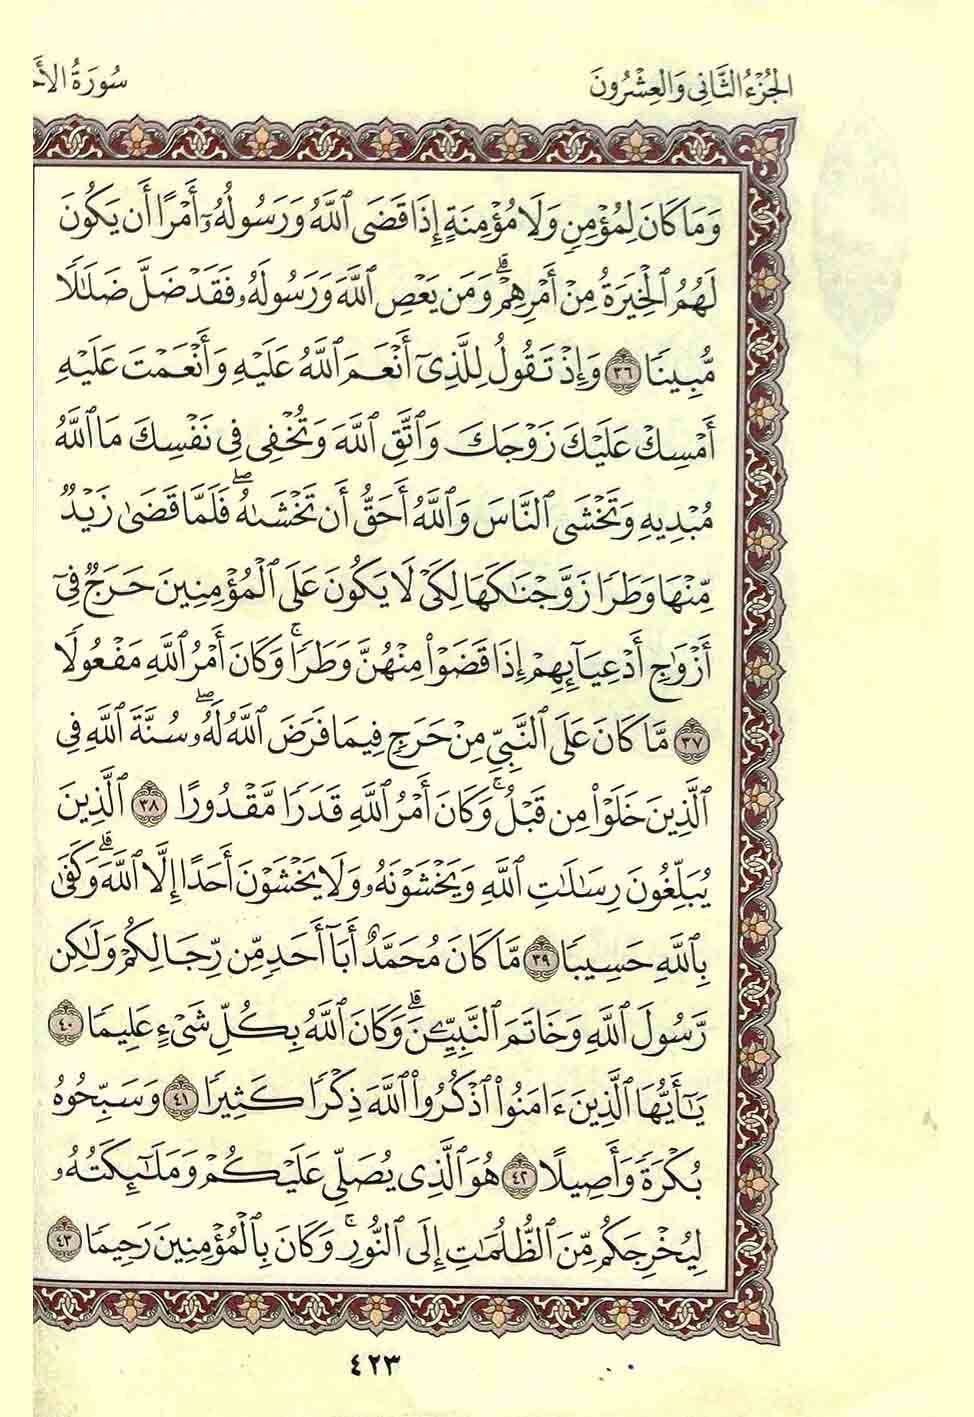 الجزء الثاني والعشرون
سورة الأح
وَمَا كَانَ لِمُؤْمِنٍ وَلَا مُؤْمِنَةٍ إِذَا قَضَى ٱللَّهُ وَرَسُولُهُۥٓ أَمْرًا أَن يَكُونَ
لَهُمُ ٱلْخِيَرَةُ مِنْ أَمْرِهِمْ ۗ وَمَن يَعْصِ ٱللَّهَ وَرَسُولَهُۥ فَقَدْ ضَلَّ ضَلَٰلًا
مُّبِينًا ٣٦ وَإِذْ تَقُولُ لِلَّذِىٓ أَنْعَمَ ٱللَّهُ عَلَيْهِ وَأَنْعَمْتَ عَلَيْهِ
أَمْسِكْ عَلَيْكَ زَوْجَكَ وَٱتَّقِ ٱللَّهَ وَتُخْفِى فِى نَفْسِكَ مَا ٱللَّهُ
مُبْدِيهِ وَتَخْشَى ٱلنَّاسَ وَٱللَّهُ أَحَقُّ أَن تَخْشَىٰهُ ۖ فَلَمَّا قَضَىٰ زَيْدٌ
مِّنْهَا وَطَرًا زَوَّجْنَٰكَهَا لِكَىْ لَا يَكُونَ عَلَى ٱلْمُؤْمِنِينَ حَرَجٌ فِىٓ
أَزْوَٰجِ أَدْعِيَآئِهِمْ إِذَا قَضَوْا۟ مِنْهُنَّ وَطَرًا ۚ وَكَانَ أَمْرُ ٱللَّهِ مَفْعُولًا
٣٧ مَّا كَانَ عَلَى ٱلنَّبِىِّ مِنْ حَرَجٍ فِيمَا فَرَضَ ٱللَّهُ لَهُۥ ۖ سُنَّةَ ٱللَّهِ فِى
ٱلَّذِينَ خَلَوْا۟ مِن قَبْلُ ۚ وَكَانَ أَمْرُ ٱللَّهِ قَدَرًا مَّقْدُورًا ٣٨ ٱلَّذِينَ
يُبَلِّغُونَ رِسَٰلَٰتِ ٱللَّهِ وَيَخْشَوْنَهُۥ وَلَا يَخْشَوْنَ أَحَدًا إِلَّا ٱللَّهَ ۗ وَكَفَىٰ
بِٱللَّهِ حَسِيبًا ٣٩ مَّا كَانَ مُحَمَّدٌ أَبَآ أَحَدٍ مِّن رِّجَالِكُمْ وَلَٰكِن
رَّسُولَ ٱللَّهِ وَخَاتَمَ ٱلنَّبِيِّـۧنَ ۗ وَكَانَ ٱللَّهُ بِكُلِّ شَىْءٍ عَلِيمًا ٤٠
يَٰٓأَيُّهَا ٱلَّذِينَ ءَامَنُوا۟ ٱذْكُرُوا۟ ٱللَّهَ ذِكْرًا كَثِيرًا ٤١ وَسَبِّحُوهُ
بُكْرَةً وَأَصِيلًا ٤٢ هُوَ ٱلَّذِى يُصَلِّى عَلَيْكُمْ وَمَلَٰٓئِكَتُهُۥ
لِيُخْرِجَكُم مِّنَ ٱلظُّلُمَٰتِ إِلَى ٱلنُّورِ ۚ وَكَانَ بِٱلْمُؤْمِنِينَ رَحِيمًا ٤٣
٤٢٣